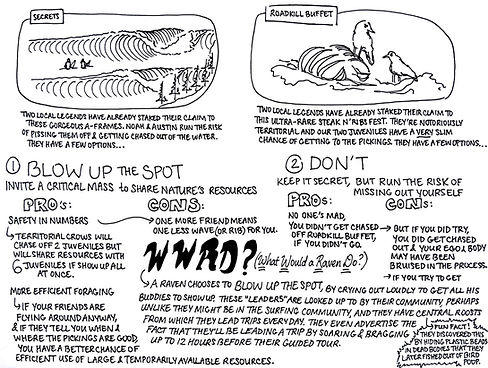 SECRETS
ROADKILL BUFFET
TWO LOCAL LEGENDS HAVE ALREADY STAKED THEIR CLAIM TO
THESE GORGEOUS A-FRAMES. NOAH & AUSTIN RUN THE RISK
OF PISSING THEM OFF & GETTING CHASED OUT OF THE WATER.
THEY HAVE A FEW OPTIONS...
TWO LOCAL LEGENDS HAVE ALREADY STAKED THEIR CLAIM TO
THIS ULTRA-RARE STEAK N' RIBS FEST. THEY'RE NOTORIOUSLY
TERRITORIAL AND OUR TWO JUVENILES HAVE A VERY SLIM
CHANCE OF GETTING TO THE PICKINGS. THEY HAVE A FEW OPTIONS...
1 BLOW UP THE SPOT
INVITE A CRITICAL MASS to SHARE NATURE'S RESOURCES
PRO's:
SAFETY IN NUMBERS
TERRITORIAL CROWS WILL
CHASE OFF 2 JUVENILES BUT
WILL SHARE RESOURCES WITH
6 JUVENILES IF SHOW UP ALL
AT ONCE.
MORE EFFICIENT FORAGING
IF YOUR FRIENDS ARE
FLYING AROUND ANYWAY,
& IF THEY TELL YOU WHEN &
WHERE THE PICKINGS ARE GOOD,
YOU HAVE A BETTER CHANCE OF
EFFICIENT USE OF LARGE & TEMPORARILY AVAILABLE RESOURCES.
CONS:
ONE MORE FRIEND MEANS
ONE LESS WAVE (OR RIB) FOR YOU.
2 DON'T
KEEP IT SECRET, BUT RUN THE RISK OF
MISSING OUT YOURSELF
PROS:
NO ONE'S MAD,
YOU DIDN'T GET CHASED
OFF ROADKILL BUFFET,
IF YOU DIDN'T GO.
CONS:
BUT IF YOU DID TRY,
YOU DID GET CHASED
OUT & YOUR EGO & BODY
MAY HAVE BEEN
BRUISED IN THE PROCESS.
IF YOU TRY TO GET
WWRD? (What Would a Raven Do?)
A RAVEN CHOOSES TO BLOW UP THE SPOT, BY CRYING OUT LOUDLY TO GET ALL HIS
BUDDIES TO SHOW UP. THESE "LEADERS" ARE LOOKED UP TO BY THEIR COMMUNITY, PERHAPS
UNLIKE THEY MIGHT BE IN THE SURFING COMMUNITY, AND HAVE CENTRAL ROOSTS
FROM WHICH THEY LEAD TRIPS EVERY DAY. THEY EVEN ADVERTISE THE
FACT THAT THEY'LL BE LEADING A TRIP BY SOARING & BRAGGING
UP TO 12 HOURS BEFORE THEIR GUIDED TOUR.
FUN FACT!
THEY DISCOVERED THIS
BY HIDING PLASTIC BEADS
IN DEAD BODIES THAT THEY
LATER FISHED OUT OF BIRD
POOP.